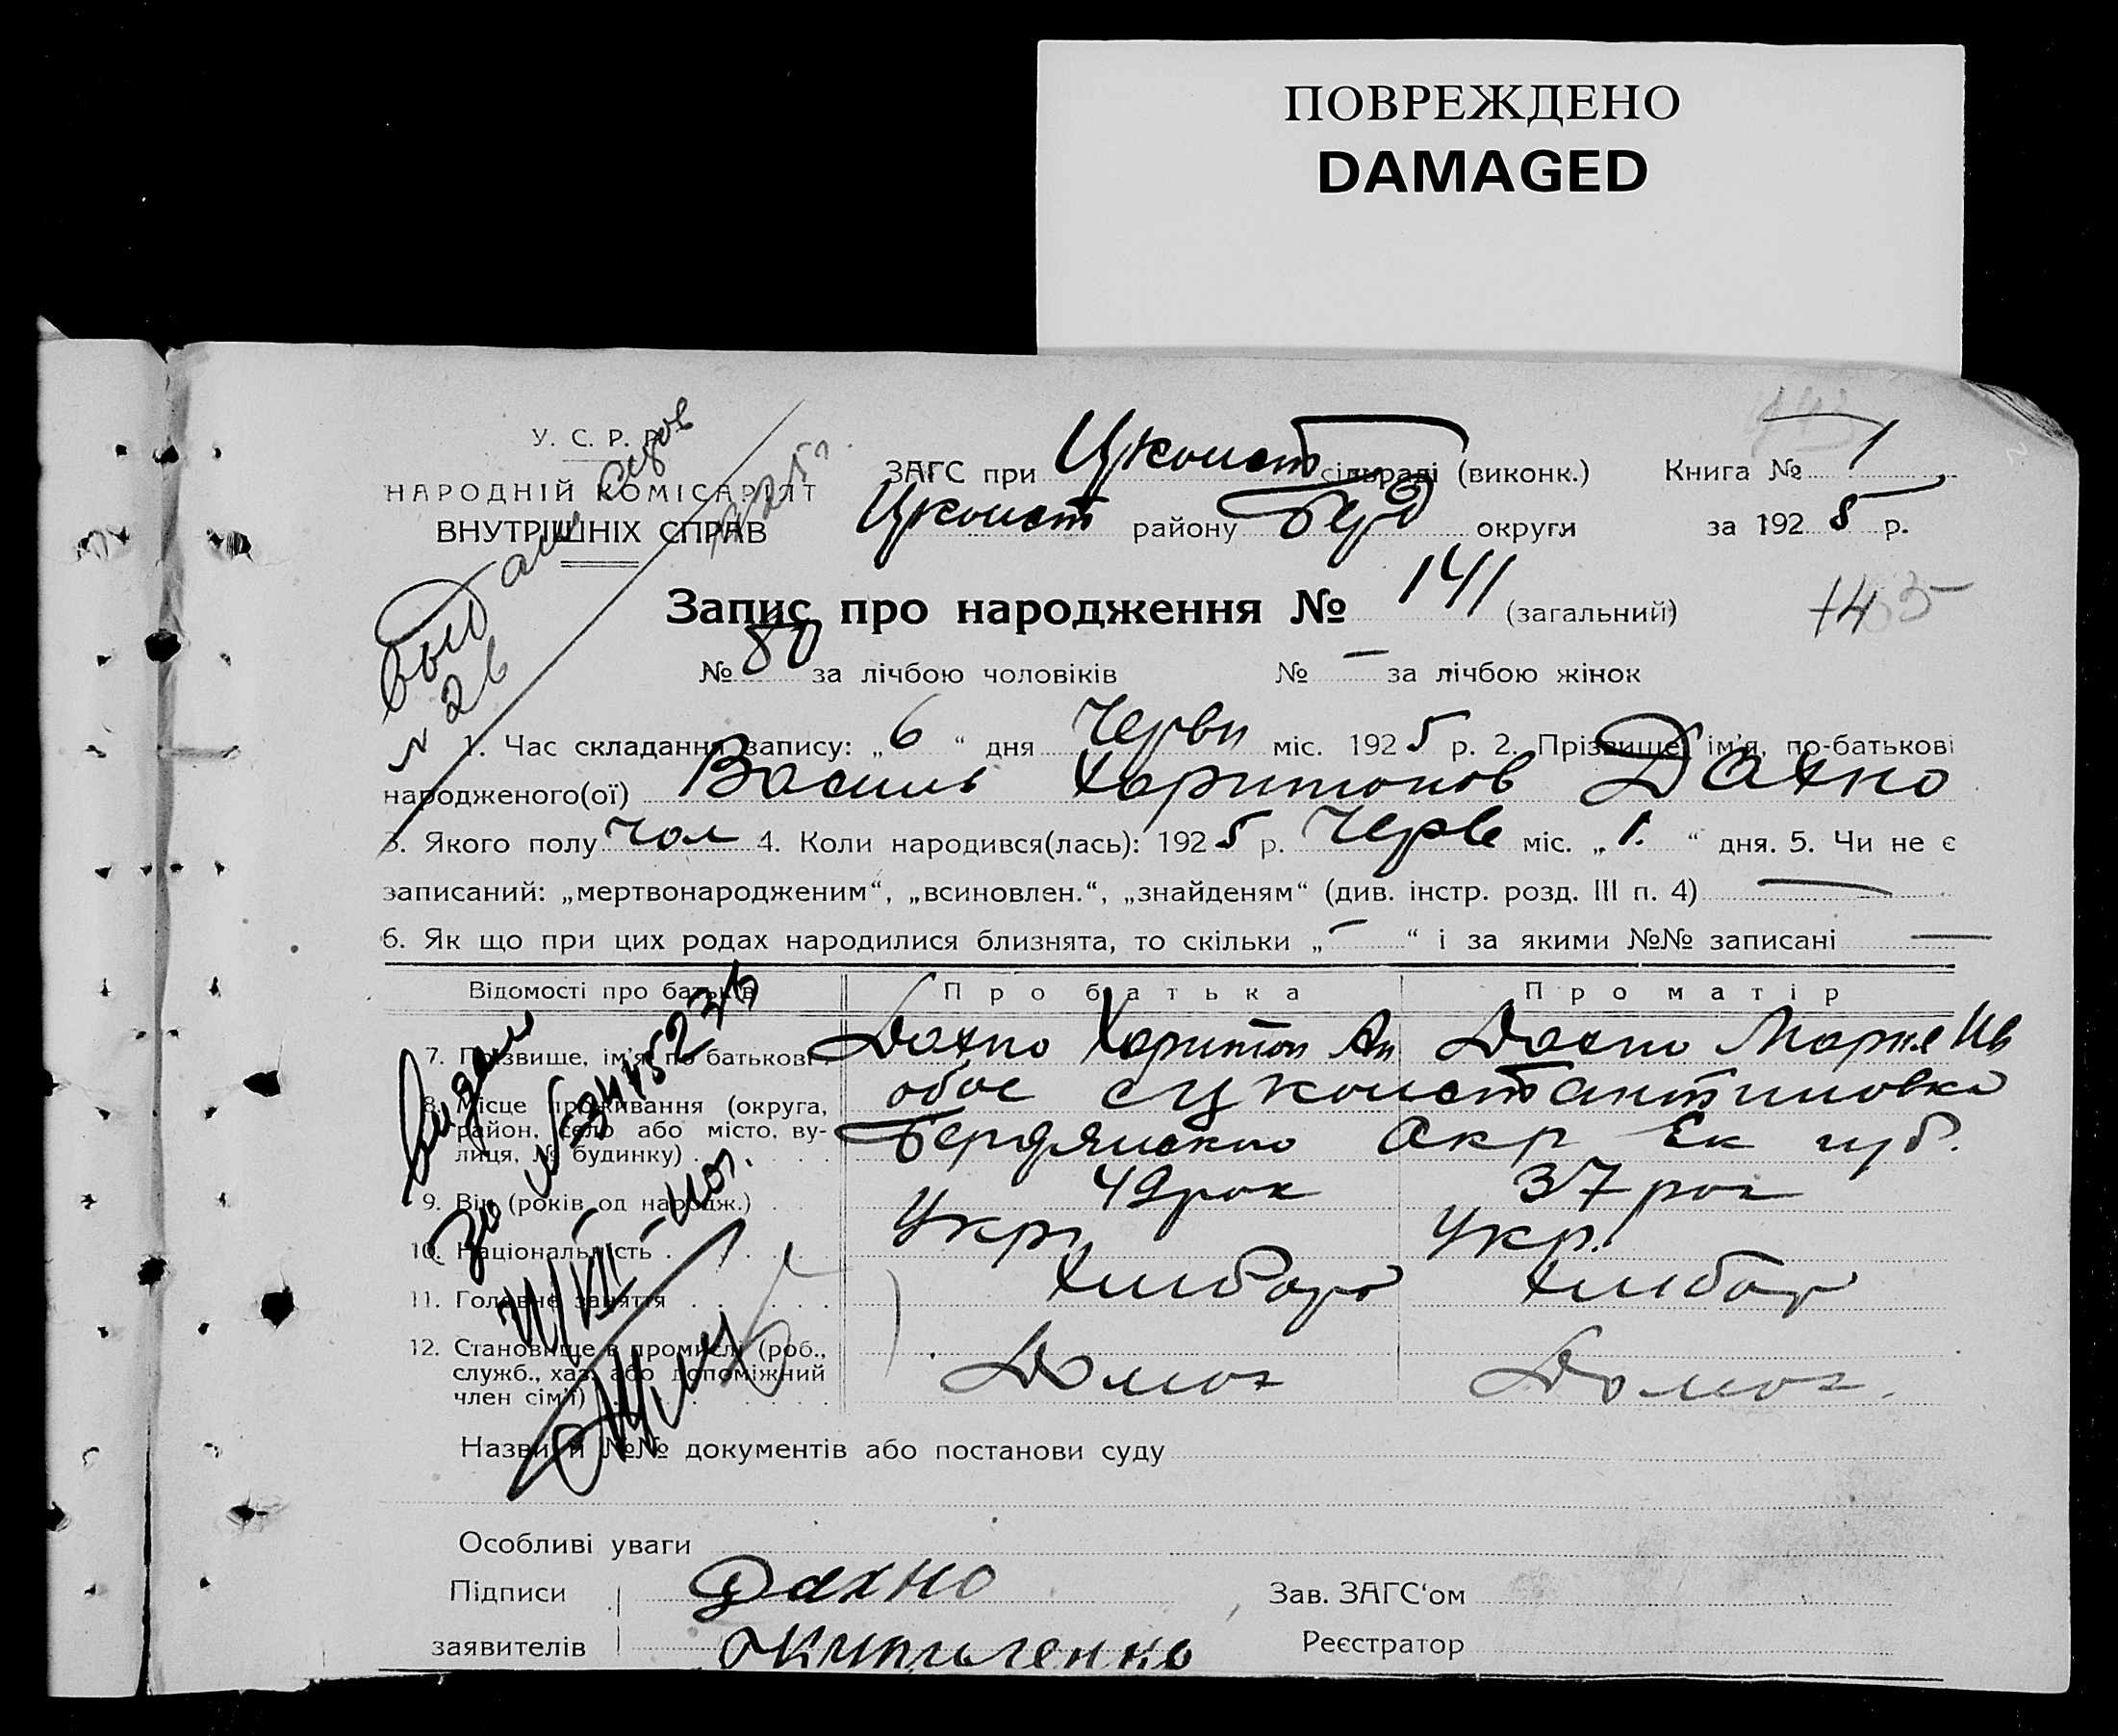 ПОВРЕЖДЕНО
DAMAGED
У. С. Р. Р.
НАРОДНІЙ КОМІСАРІЯТ
ВНУТРІШНІХ СПРАВ
ЗАГС при Цконст сільраді (виконк.) Книга № 1
Цконст району Берд округи за 1925 р.
Запис про народження № 141 (загальний)
№ 80 за лічбою чоловіків № — за лічбою жінок
1. Час складання запису: „6“ дня Червн міс. 1925 р. 2. Прізвище, ім'я, по-батькові
народженого(ої) Василь Харитонов Дахно
3. Якого полу чол 4. Коли народився(лась): 1925 р. Черве міс. „1.“ дня. 5. Чи не є
записаний: „мертвонародженим“, „всиновлен.“, „знайденям“ (див. інстр. розд. III п. 4) —
6. Як що при цих родах народилися близнята, то скільки „—“ і за якими №№ записані —
Відомості про батьків Про батька Про матір
7. Прізвище, ім'я, по батькові Дахно Харитон Ан Дахно Мария Ив
8. Місце проживання (округа, обое с Цконстантиновка
район, село або місто, ву- Бердянско Окр Ек губ.
лиця, № будинку)
9. Вік (років од народж.) 49 рок 37 рок
10. Національність Укр. Укр.
11. Головне заняття Хлибор Хлибор
12. Становище в промислі (роб.,
служб., хаз. або допоміжний
член сім'ї)
Назви й №№ документів або постанови суду
Особливі уваги
Підписи Дахно
заявителів
Зав. ЗАГС'ом
Реєстратор